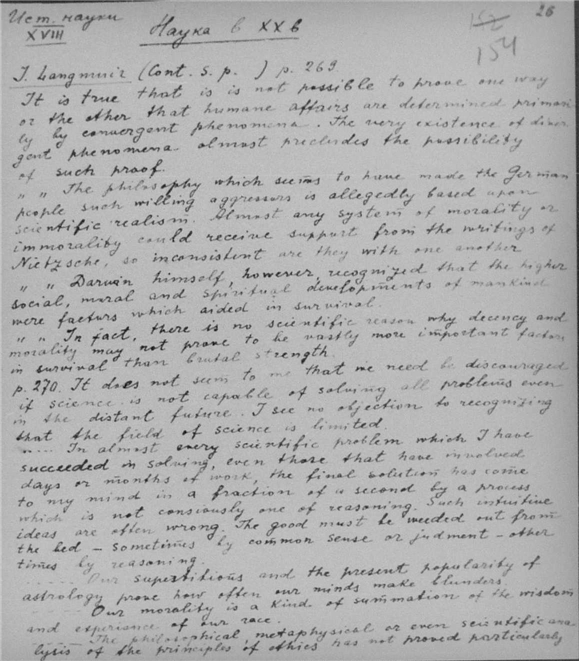 Ист. науки 152 26
XVIII Наука в XX в 154
I. Langmuir (Cont. S. p. ) p. 269
It is true that is is not possible to prove one way
or the other that humane affairs are determined primari
ly by convergent phenomena. The very existence of diver
gent phenomena almost precludes the possibility
of such proof.
" " The philosophy which seems to have made the German
people such willing aggressors is allegedly based upon
scientific realism. Almost any system of morality or
immorality could receive support from the writings of
Nietzsche, so inconsistent are they with one another
" " Darwin himself, however, recognized that the higher
social, moral and spiritual developments of mankind
were factors which aided in survival.
" " In fact, there is no scientific reason why decency and
morality may not prove to be vastly more important factors
in survival than brutal strength.
p. 270. It does not seem to me that we need be discouraged
if science is not capable of solving all problems even
in the distant future. I see no objection to recognizing
that the field of science is limited.
"... In almost every scientific problem which I have
succeeded in solving, even those that have involved
days or months of work, the final solution has come
to my mind in a fraction of a second by a process
which is not consiously one of reasoning. Such intuitive
ideas are often wrong. The good must be weeded out from
the bed – sometimes by common sense or judment – other
times by reasoning.
...... Our superstitious and the present popularity of
astrology prove how often our minds make blunders.
...... Our morality is a kind of summation of the wisdom
and experience of our race.
...... The philosophical, metaphysical or even scientific ana
lysis of the principles of ethics has not proved particularly